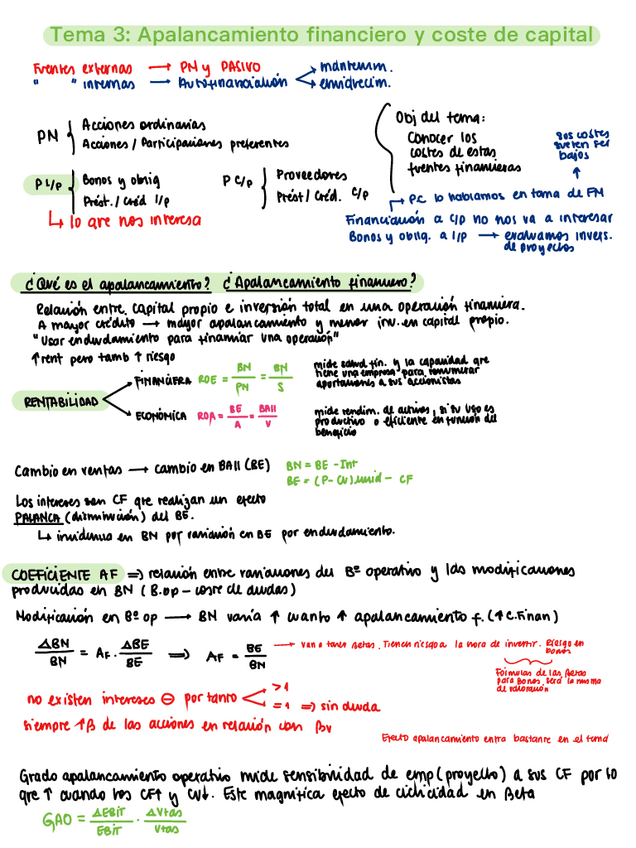 Tema 3: Apalancamiento financiero y coste de capital
Fuentes externas → PN y PASIVO
" " internas → Autofinanciación < mantenim.
enriquecim.
PN { Acciones ordinarias
Acciones / Participaciones preferentes
Obj del tema:
Conocer los
costes de estas
fuentes financieras
sus costes
suelen ser
bajos
P L/p { Bonos y oblig
Prést. / Créd l/p
P C/p { Proveedores
Prést / Créd. C/p
↳ lo que nos interesa
→ P.C lo hablamos en tema de FM
Financiación a c/p no nos va a interesar
Bonos y oblig. a l/p → evaluamos invers.
de proyectos
¿Qué es el apalancamiento? ¿Apalancamiento financiero?
Relación entre capital propio e inversión total en una operación financiera.
A mayor crédito → mayor apalancamiento y menor inv. en capital propio.
"Usar endeudamiento para financiar una operación"
↑ rent pero tamb ↑ riesgo
RENTABILIDAD
FINANCIERA ROE = BN/PN = BN/S
mide salud fin. y la capacidad que
tiene una empresa para remunerar
aportaciones a sus accionistas
ECONÓMICA ROA = BE/A = BAII/V
mide rendim. de activos, si su uso es
productivo o eficiente en función del
beneficio
Cambio en ventas → cambio en BAII (BE) BN = BE - Int
BE = (P - CV) unid - CF
Los intereses son CF que realizan un efecto
PALANCA (disminución) del BE.
↳ incidencia en BN por variación en BE por endeudamiento.
COEFICIENTE AF => relación entre variaciones del Bº operativo y las modificaciones
producidas en BN (B.op - coste de deudas)
Modificación en Bº op → BN varía ↑ cuanto ↑ apalancamiento f. (↑ C. Finan)
ΔBN/BN = AF · ΔBE/BE => AF = BE/BN
→ Van a tener Betas. Tienen riesgo a la hora de invertir. Riesgo en
bonos
Fórmulas de las Betas
para Bonos será la misma
de valoración
no existen intereses ⊖ por tanto < >1
=1 => sin deuda
siempre ↑ β de las acciones en relación con βu
Efecto apalancamiento entra bastante en el tema
Grado apalancamiento operativo mide sensibilidad de emp (proyecto) a sus CF por lo
que ↑ cuando los CF↑ y CV↓. Este magnifica efecto de ciclicidad en Beta
GAO = ΔEBIT/EBIT · ΔVtas/Vtas